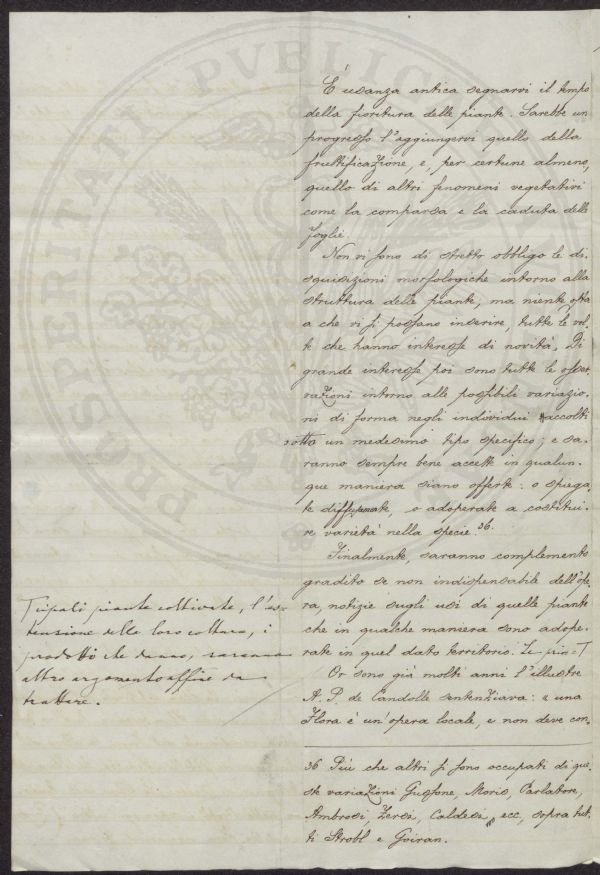 È usanza antica segnarvi il tempo
della fioritura delle piante. Sarebbe un
progresso l'aggiungervi quello della
fruttificazione, e, per certune almeno,
quello di altri fenomeni vegetativi
come la comparsa e la caduta delle
foglie.
Non vi sono di stretto obbligo le di-
squisizioni morfologiche intorno alla
struttura delle piante, ma niente osta
a che vi si possano inserire, tutte le vol-
te che hanno interesse di novità. Di
grande interesse poi sono tutte le osser-
vazioni intorno alle possibili variazio-
ni di forma negli individui raccolti
sotto un medesimo tipo specifico; e sa-
ranno sempre bene accette in qualun-
que maniera siano offerte: o spiega-
te, o adoperate a costitui-
re varietà nella specie. 36.
Finalmente, saranno complemento
gradito se non indispensabile dell'ope-
ra, notizie sugli usi di quelle piante
che in qualche maniera sono adope-
rate in quel dato territorio.
Or sono già molti anni l'illustre
A. P. de Candolle sentenziava: « una
Flora è un'opera locale, e non deve con-
piante coltivate, l'es-
tensione della loro coltura, i
prodotti che danno, saranno
altro argomento affine da
trattare.
36 Più che altri si sono occupati di que-
ste variazioni Gussone, Moris, Parlatore,
Ambrosi, Zersi, Caldesi, ecc, sopra tut-
ti Strobl e Goiran.
PVBLICAE
PROSPERITATI